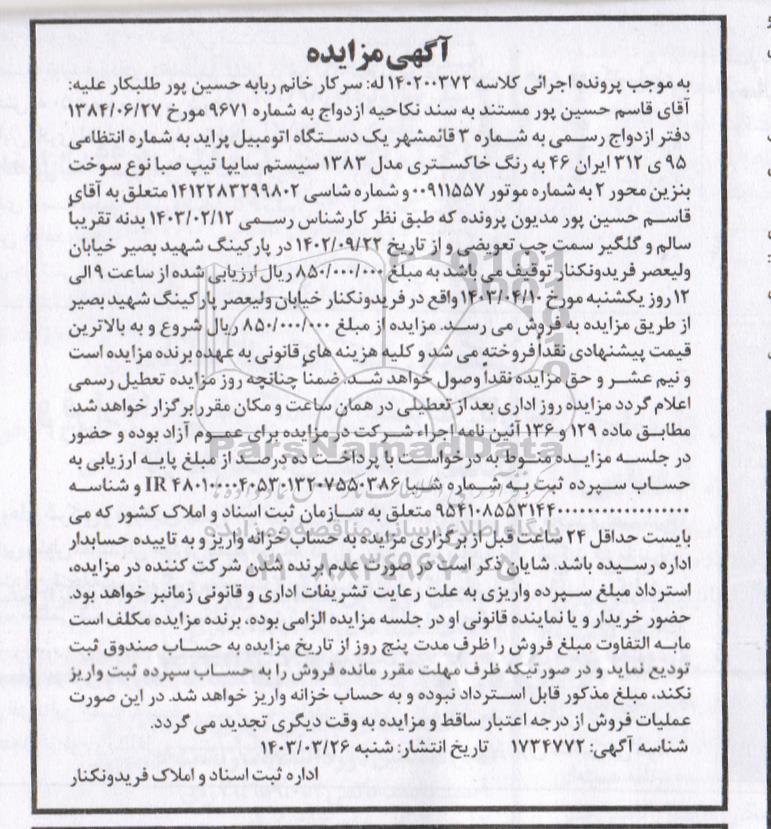 آگهی مزایده
به موجب پرونده اجرائی کلاسه ۱۴۰۲۰۰۳۷۲ له: سرکار خانم ربابه حسین پور طلبکار علیه:
آقای قاسم حسین پور مستند به سند نکاحیه ازدواج به شماره ۹۶۷۱ مورخ ۱۳۸۴/۰۶/۲۷
دفتر ازدواج رسمی به شماره ۳ قائمشهر یک دستگاه اتومبیل پراید به شماره انتظامی
۹۵ ی ۳۱۲ ایران ۴۶ به رنگ خاکستری مدل ۱۳۸۳ سیستم سایپا تیپ صبا نوع سوخت
بنزین محور ۲ به شماره موتور ۰۰۹۱۱۵۵۷ و شماره شاسی ۱۴۱۲۲۸۳۲۹۹۸۰۲ متعلق به آقای
قاسم حسین پور مدیون پرونده که طبق نظر کارشناس رسمی ۱۴۰۳/۰۲/۱۲ بدنه تقریبا
سالم و گلگیر سمت چپ تعویض و از تاریخ ۱۴۰۲/۰۹/۲۲ در پارکینگ شهید بصیر خیابان
ولیعصر فریدونکنار توقیف می باشد به مبلغ ۸۵۰/۰۰۰/۰۰۰ ریال ارزیابی شده از ساعت ۹ الی
۱۲ روز یکشنبه مورخ ۱۴۰۳/۰۴/۱۰ واقع در فریدونکنار خیابان ولیعصر پارکینگ شهید بصیر
از طریق مزایده به فروش می رسد. مزایده از مبلغ ۸۵۰/۰۰۰/۰۰۰ ریال شروع و به بالاترین
قیمت پیشنهادی نقداً فروخته می شد و کلیه هزینه های قانونی به عهده برنده مزایده است
و نیم عشر و حق مزایده نقداً وصول خواهد شد. ضمناً چنانچه روز مزایده تعطیل رسمی
اعلام گردد مزایده روز اداری بعد از تعطیلی در همان ساعت و مکان مقرر برگزار خواهد شد.
مطابق ماده ۱۲۹ و ۱۳۶ آئین نامه اجراء شرکت در مزایده برای عموم آزاد بوده و حضور
در جلسه مزایده منوط به درخواست با پرداخت ده درصد از مبلغ پایه ارزیابی به
حساب سپرده ثبت به شماره شبا IR ۴۸۰۱۰۰۰۰۴۰۵۳۰۱۳۲۰۷۵۵۰۳۸۶ و شناسه
۹۵۴۱۰۸۵۵۳۱۴۴۰۰۰۰۰۰۰۰۰۰۰۰۰۰۰۰۰۰ متعلق به سازمان ثبت اسناد و املاک کشور که می
بایست حداقل ۲۴ ساعت قبل از برگزاری مزایده به حساب خزانه واریز و به تاییده حسابدار
اداره رسیده باشد. شایان ذکر است در صورت عدم برنده شدن شرکت کننده در مزایده،
استرداد مبلغ سپرده واریزی به علت رعایت تشریفات اداری و قانونی زمانبر خواهد بود.
حضور خریدار و یا نماینده قانونی او در جلسه مزایده الزامی بوده، برنده مزایده مکلف است
مابه التفاوت مبلغ فروش را ظرف مدت پنج روز از تاریخ مزایده به حساب صندوق ثبت
تودیع نماید و در صورتی که ظرف مهلت مقرر مانده فروش را به حساب سپرده ثبت واریز
نکند، مبلغ مذکور قابل استرداد نبوده و به حساب خزانه واریز خواهد شد. در این صورت
عملیات فروش از درجه اعتبار ساقط و مزایده به وقت دیگری تجدید می گردد.
شناسه آگهی: ۱۷۳۴۷۷۲ تاریخ انتشار: شنبه ۱۴۰۳/۰۳/۲۶
اداره ثبت اسناد و املاک فریدونکنار
ParsNamadData
پایگاه اطلاع رسانی مناقصه و مزایده
۰۲۱-۸۸۳۴۹۶۷۰